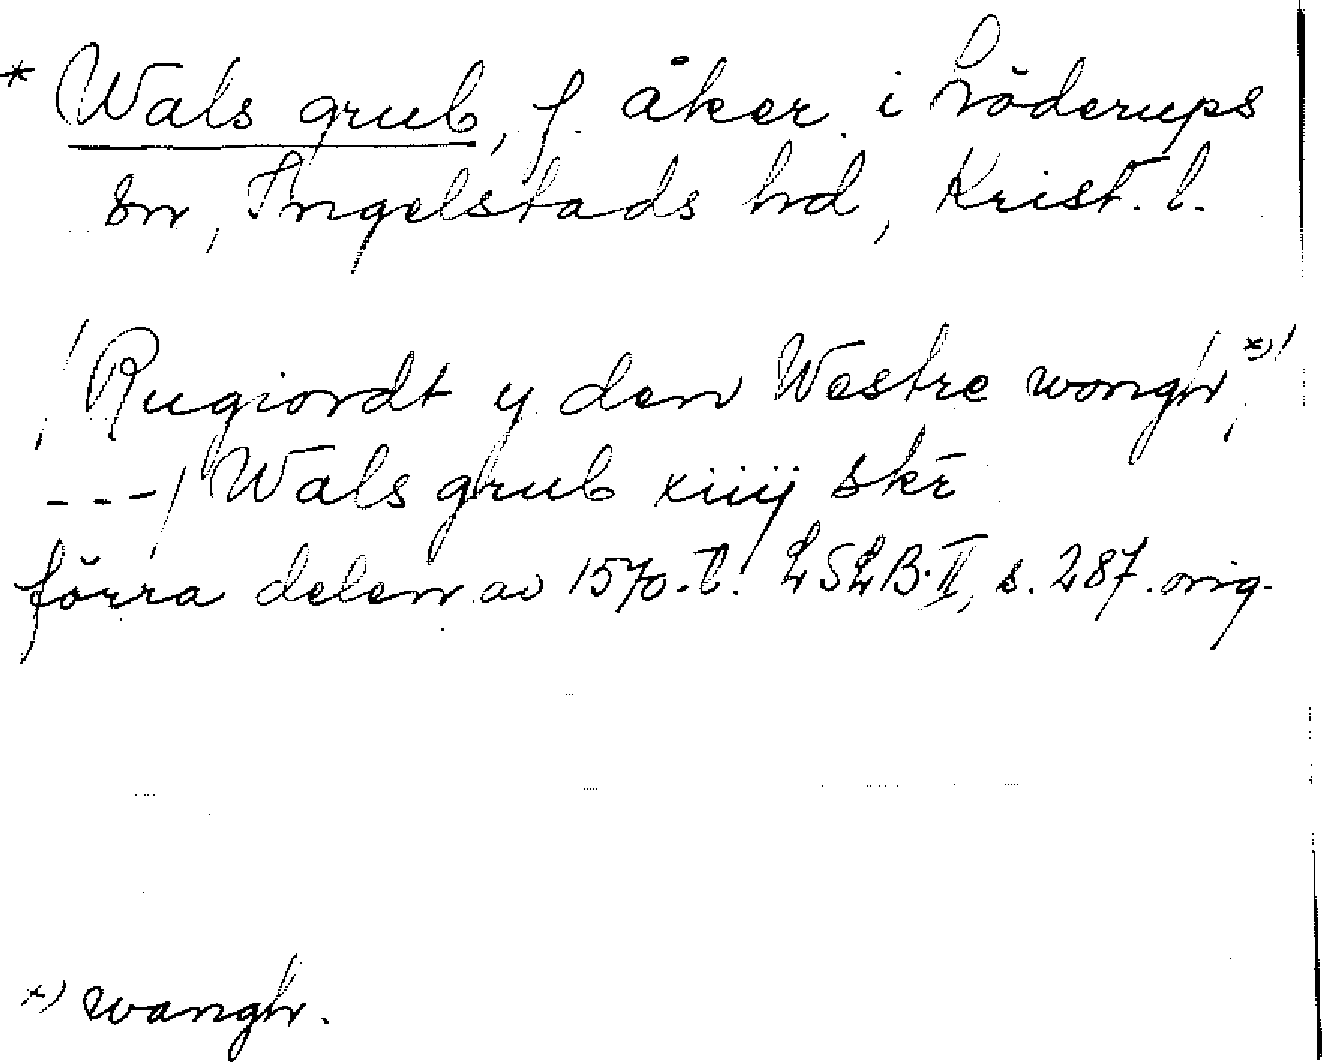 * Wals grub, f. åker i Löderups
sn, Ingelstads hd, Krist. l.
/Rugiordt y den Westre wongh/ x)/
---/ Wals grub xiiij skr̄
förra delen av 1570-t. LSLB. II, s. 287. orig.
x) wangh.